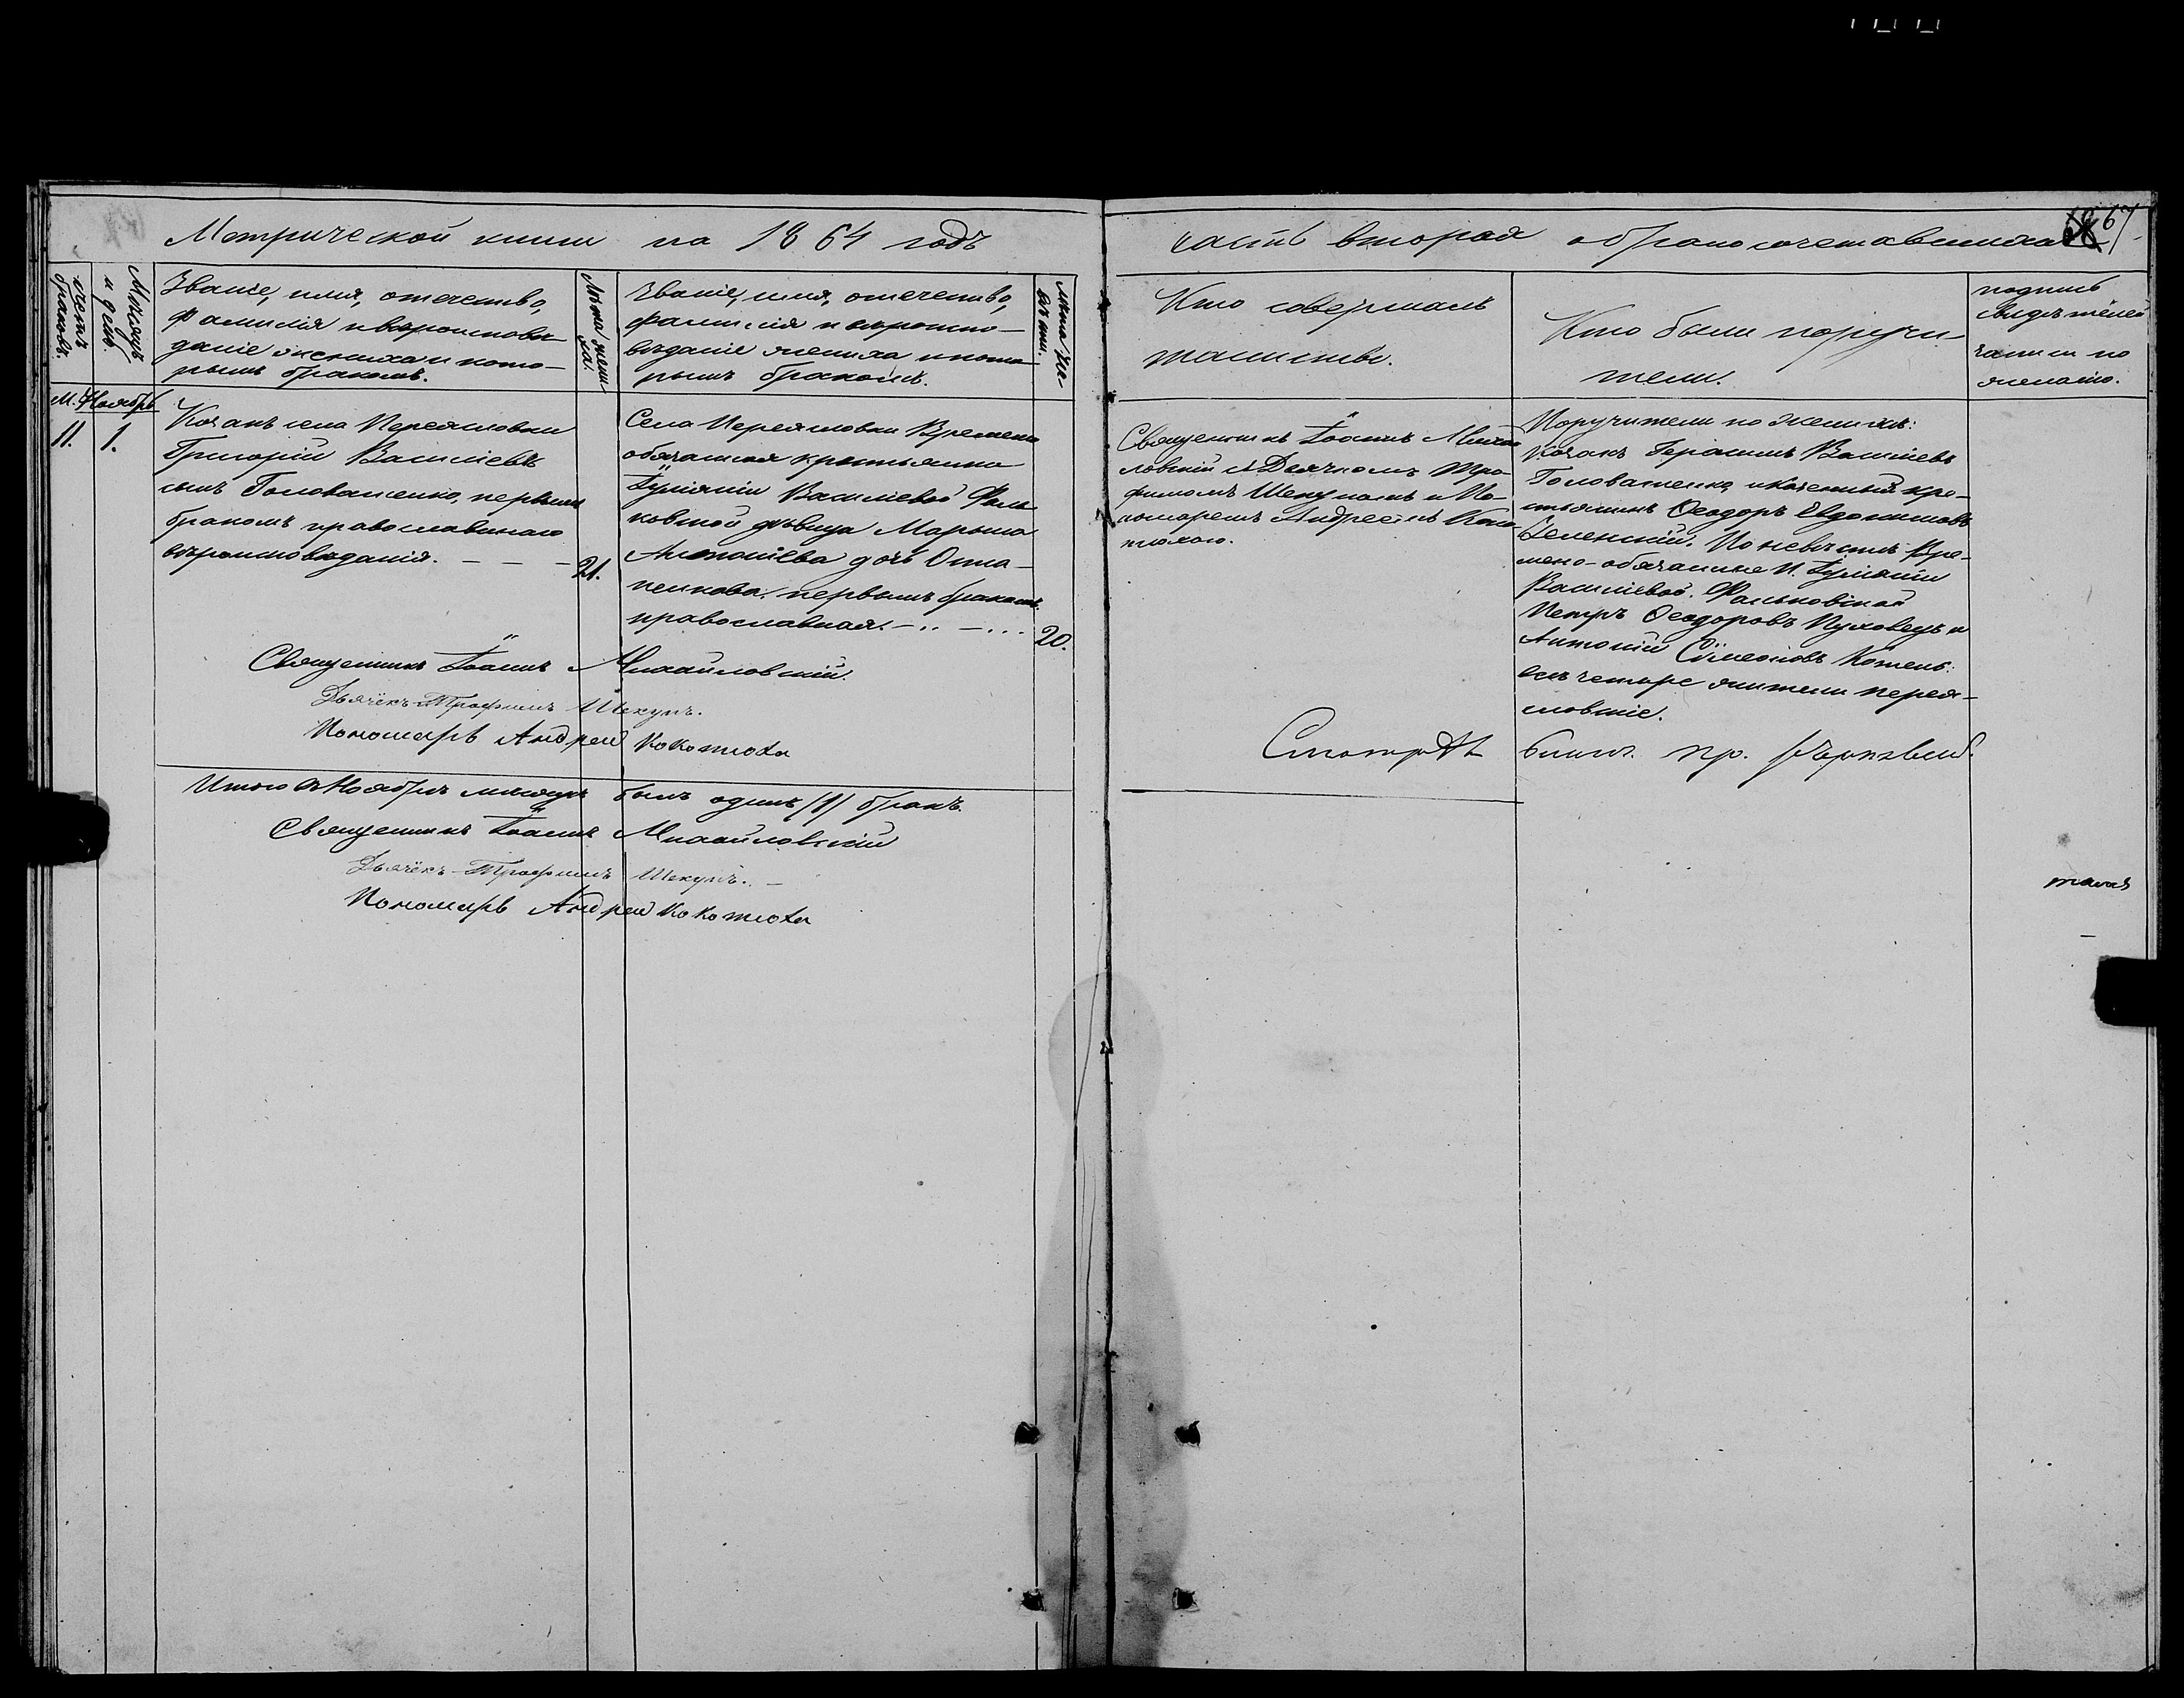 Метрической книги на 1864 годъ
часть вторая о бракосочетавшихся
67
счетъ браковъ.
Мѣсяцъ и день.
Званіе, имя, отечество,
фамилія и вѣроисповѣ-
даніе жениха и кото-
рымъ бракомъ.
Лѣта жени-
ха.
Званіе, имя, отечество,
фамилія и вѣроиспо-
вѣданіе жениха и кото
рымъ бракомъ.
Лѣта не-
вѣсты.
Кто совершалъ
таинство.
Кто были поручи-
тели.
подпись
свидѣтелей
записи по
желанію.
М. Ноябрь
11.
1.
Козакъ села Переясловки
Григорій Василіевъ
сынъ Головатенко, первымъ
бракомъ православнаго
вѣроисповѣданія. — — —
21.
Села Переясловки Временно
обязанная крестьянка
Іуліаніи Василіевой Фаль
ковской дѣвица Марѳа
Антоніева дочь Оста-
пенкова. первымъ бракомъ.
православная.
20.
Священникъ Іоаннъ Михай
ловскій съ Дьячкомъ Тро-
фимомъ Шекуномъ и По-
номаремъ Андреемъ Коко
тюхою.
Поручители по женихѣ:
козакъ Герасимъ Василіевъ
Головатенко, и казенный кре-
стьянинъ Ѳеодоръ Евдокимовъ
Зеленскій. По невѣстѣ Вре-
мено-обязанные П. Іуліаніи
Василіевой Фальковской
Петръ Ѳеодоровъ Пуховецъ и
Антоній Сѵмеоновъ Котень:
всѣ четыре жители перея-
словскіе.
Священникъ Іоаннъ Михайловскій.
Дьячёкъ Трофимъ Шекунъ.
Пономарь Андрей Кокотюха
Смотрѣлъ
Итого въ Ноябрѣ мѣсяцѣ былъ одинъ /1/ бракъ.
Священникъ Іоаннъ Михайловскій
Дьячёкъ Трофимъ Шекунъ. —
Пономарь Андрей Кокотюха